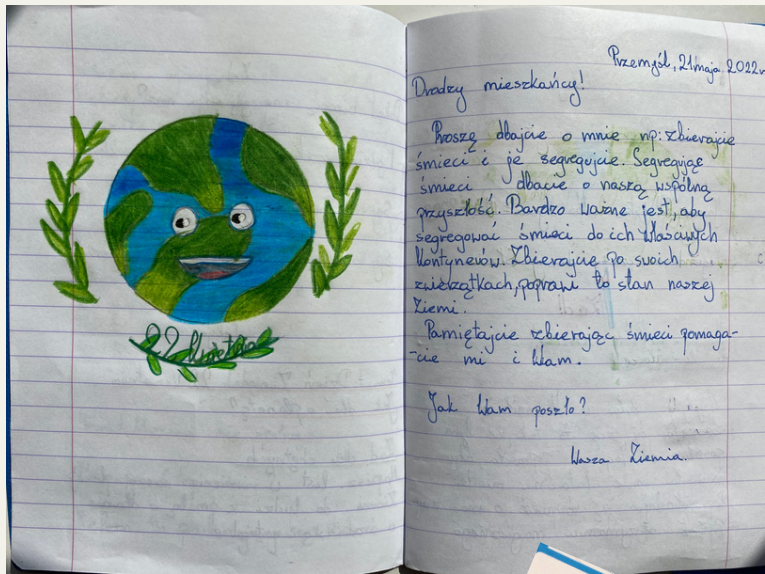 22 kwietnia
Przemyśl, 21 maja 2022r
Drodzy mieszkańcy!
Proszę dbajcie o mnie np: zbierajcie
śmieci i je segregujcie. Segregując
śmieci dbacie o naszą wspólną
przyszłość. Bardzo ważne jest, aby
segregować śmieci do ich właściwych
kontynerów. Zbierajcie po swoich
zwierzątkach, poprawi to stan naszej
Ziemi.
Pamiętajcie zbierając śmieci pomaga-
-cie mi i Wam.
Jak Wam poszło?
Wasza Ziemia.